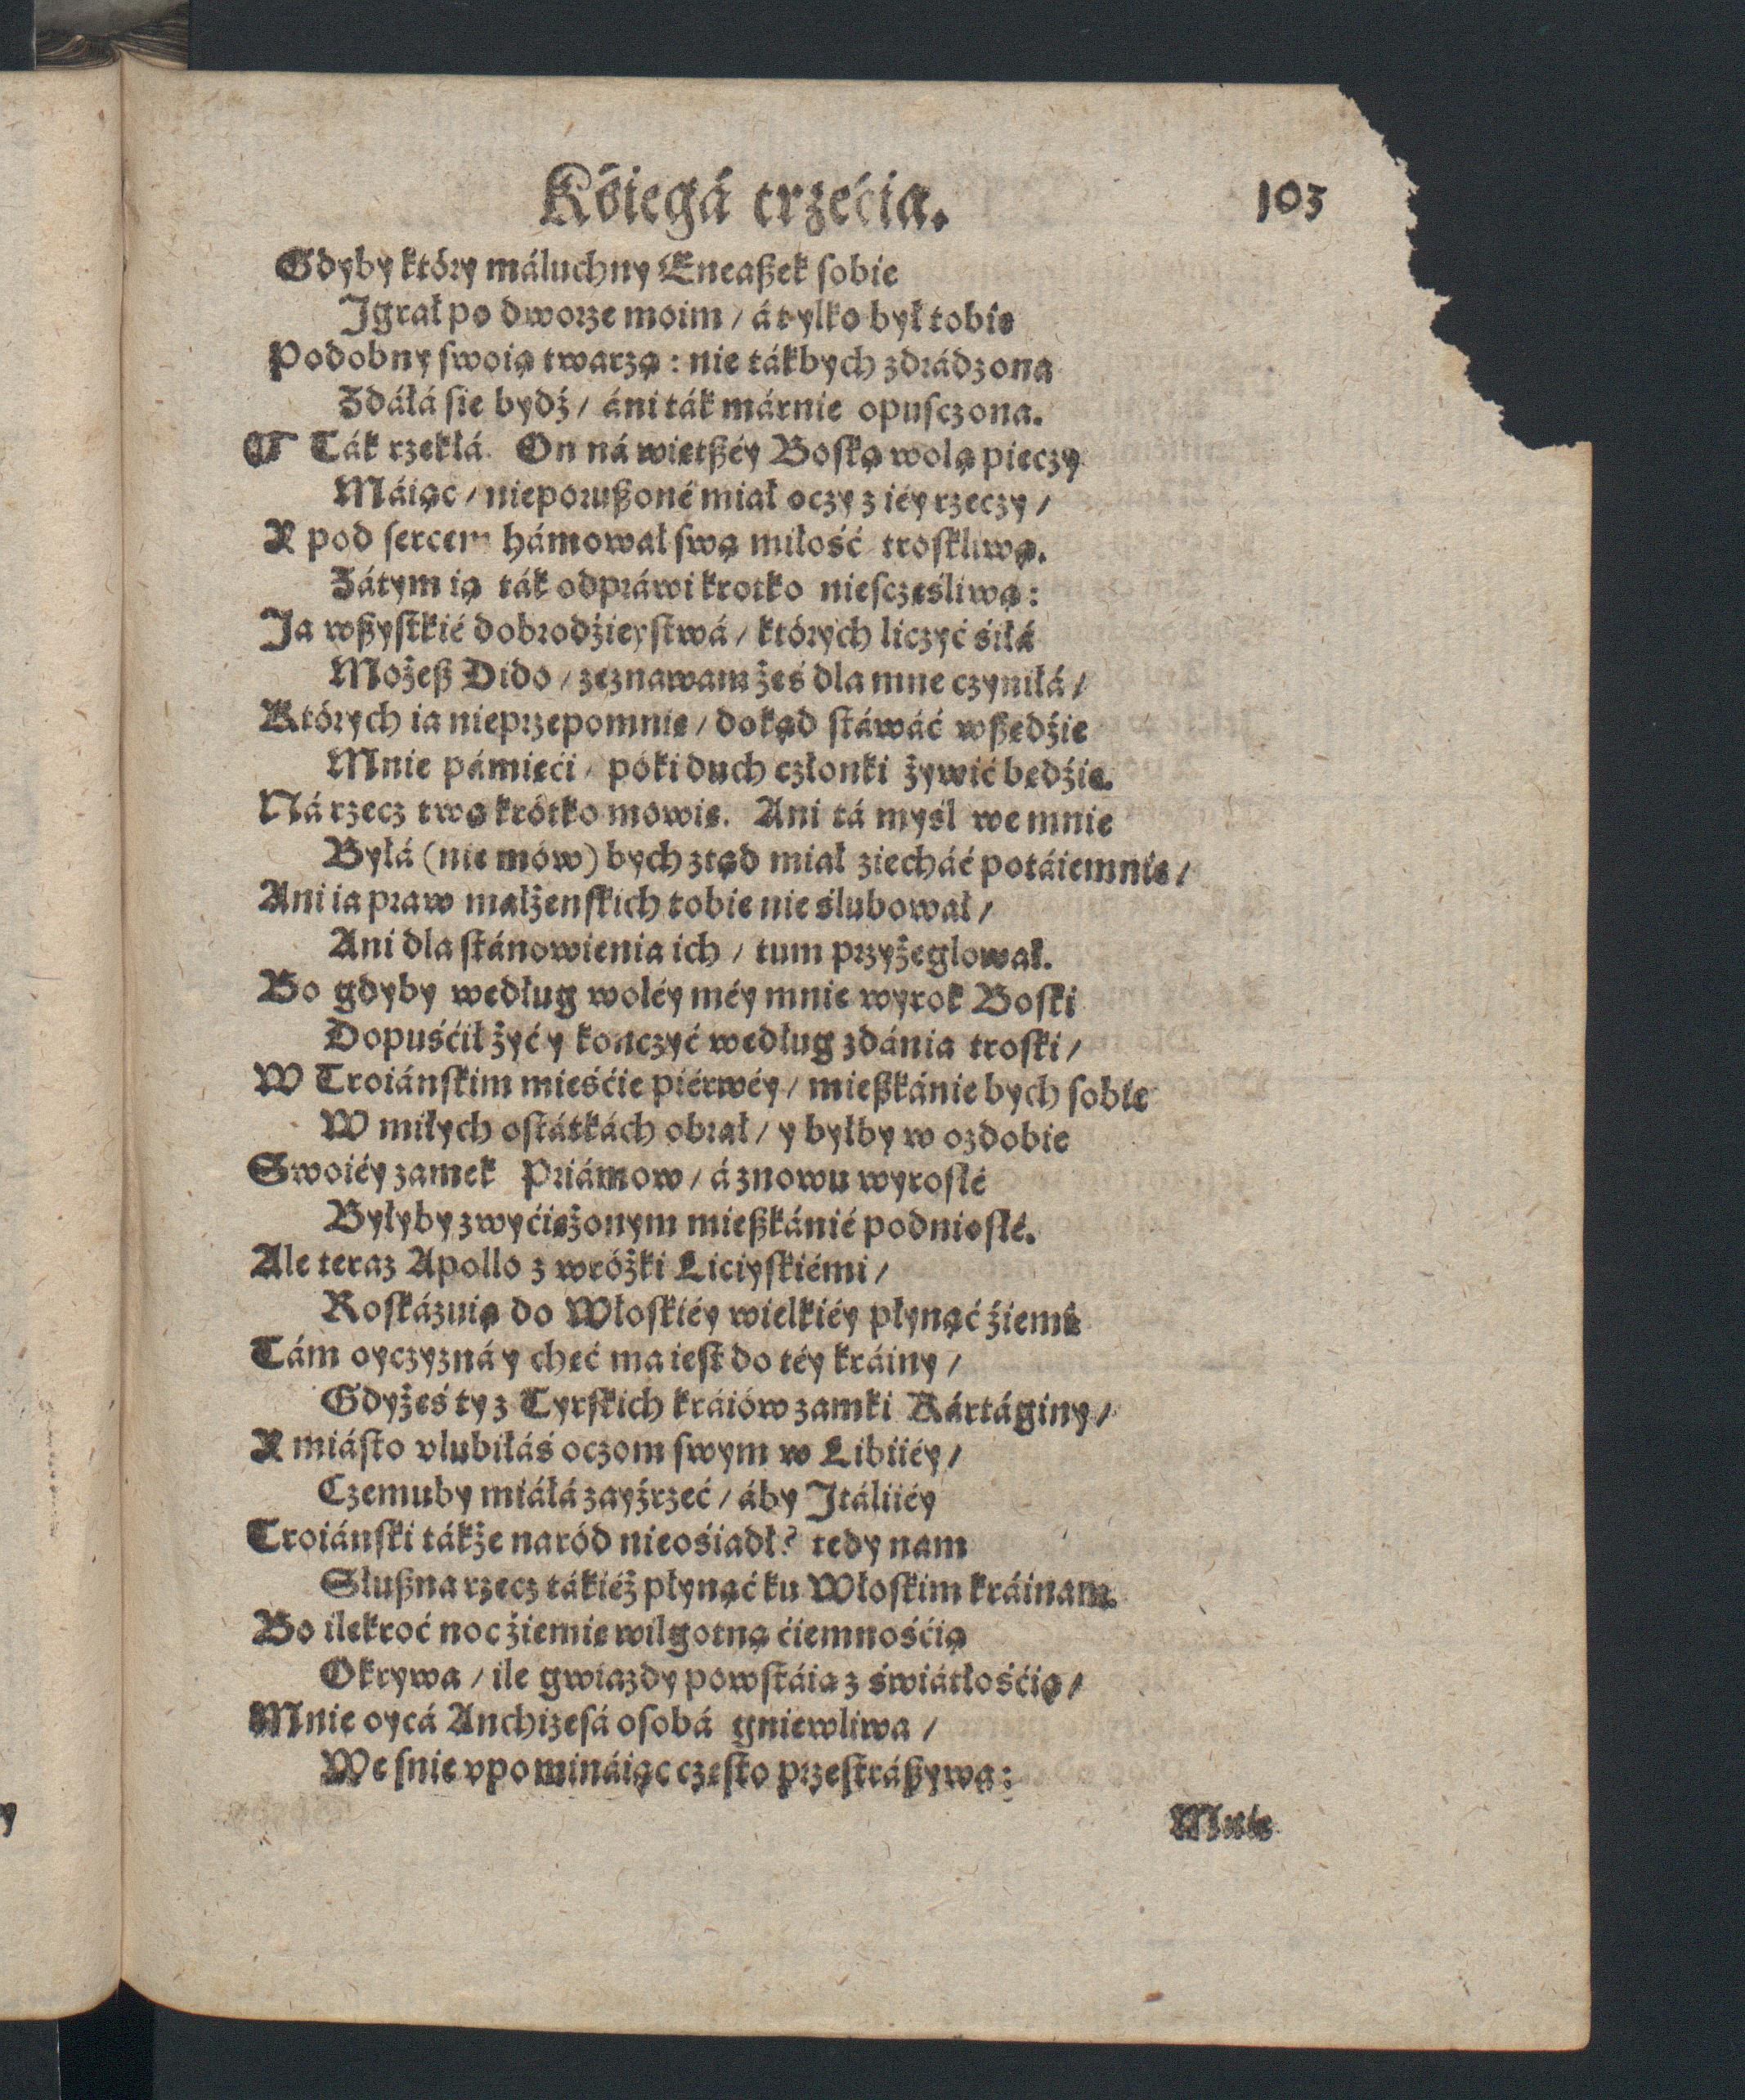 Kśięgá trzećia. 103
Gdyby który máluchny Eneaßek ſobie
Igrał po dworze moim / á tylko był tobie
Podobny ſwoią twarzą : nie tákbych zdrádzona
Zdáłá ſie bydź / áni ták márnie opuſczona.
¶ Ták rzekłá. On ná wietßéy Boſką wolą pieczy
Máiąc / nieporußoné miał oczy z iéy rzeczy /
Y pod ſercem hámował ſwą miłość troſkliwą.
Zátym ią ták odpráwi krotko nieſczęśliwą :
Ja wßyſtkié dobrodźieyſtwá / których liczyć śiłá
Możeß Dido / zeznawam żeś dla mne czyniłá /
Których ia nieprzepomnię / dokąd ſtáwáć wßędźie
Mnie pámięći / póki duch członki żywić będźie.
Ná rzecz twą krótko mowię. Ani tá myśl we mnie
Byłá (nie mów) bych ztąd miał ziecháć potáiemnie /
Ani ia praw małżenſkich tobie nie ślubował /
Ani dla ſtánowienia ich / tum przyżeglował.
Bo gdyby według woléy méy mnie wyrok Boſki
Dopuśćił żyć y konczyć według zdánia troſki /
W Troiánſkim mieśćie piérwéy / mießkánie bych ſobie
W miłych oſtátkách obrał / y byłby w ozdobie
Swoiéy zamek Priámow / á znowu wyroſłé
Byłyby zwyćiężonym mießkánié podnioſłé.
Ale teraz Apollo z wróżki Liciyſkiémi /
Roſkázuią do Włoſkiéy wielkiéy płynąć źiemi
Tám oyczyzná y chęć ma ieſt do téy kráiny /
Gdyżeś ty z Tyrſkich kráiów zamki Kártáginy /
Y miáſto vlubiłáś oczom ſwym w Libiiéy /
Czemuby miáłá zayźrzeć / áby Itáliiéy
Troiánſki tákże naród nieośiadł? tedy nam
Słußna rzecz tákiéż płynąć ku Włoſkim kráinam.
Bo ilekroć noc źiemię wilgotną ćiemnośćią
Okrywa / ile gwiazdy powſtáią z świátłośćią /
Mnie oycá Anchizeſá oſobá gniewliwa /
We ſnie vpomináiąc częſto przeſtráßywa :
Mnie